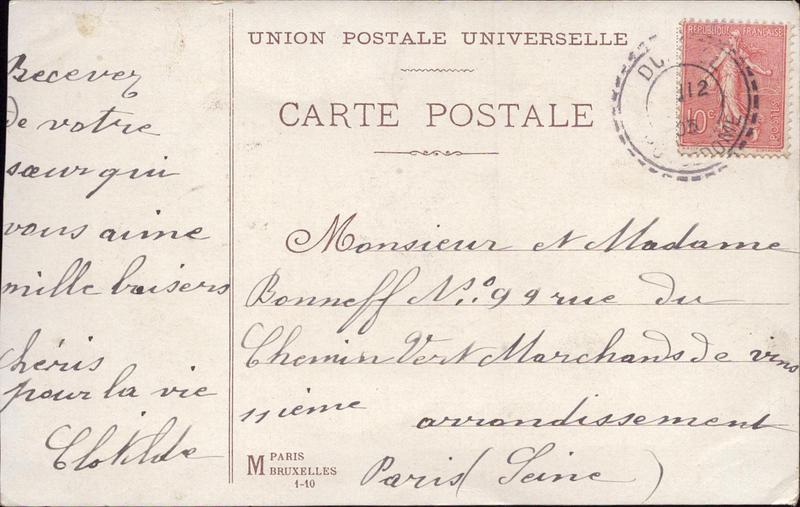 UNION POSTALE UNIVERSELLE
CARTE POSTALE
REPUBLIQUE FRANÇAISE
10c
POSTES
DOME
Recevez
de votre
sœur qui
vous aime
mille baisers
chéris
pour la vie
Clotilde
Monsieur et Madame
Bonneff No. 99 rue du
Chemin Vert Marchands de vins
11ième arrondissement
Paris (Seine)
M PARIS
BRUXELLES
1-10